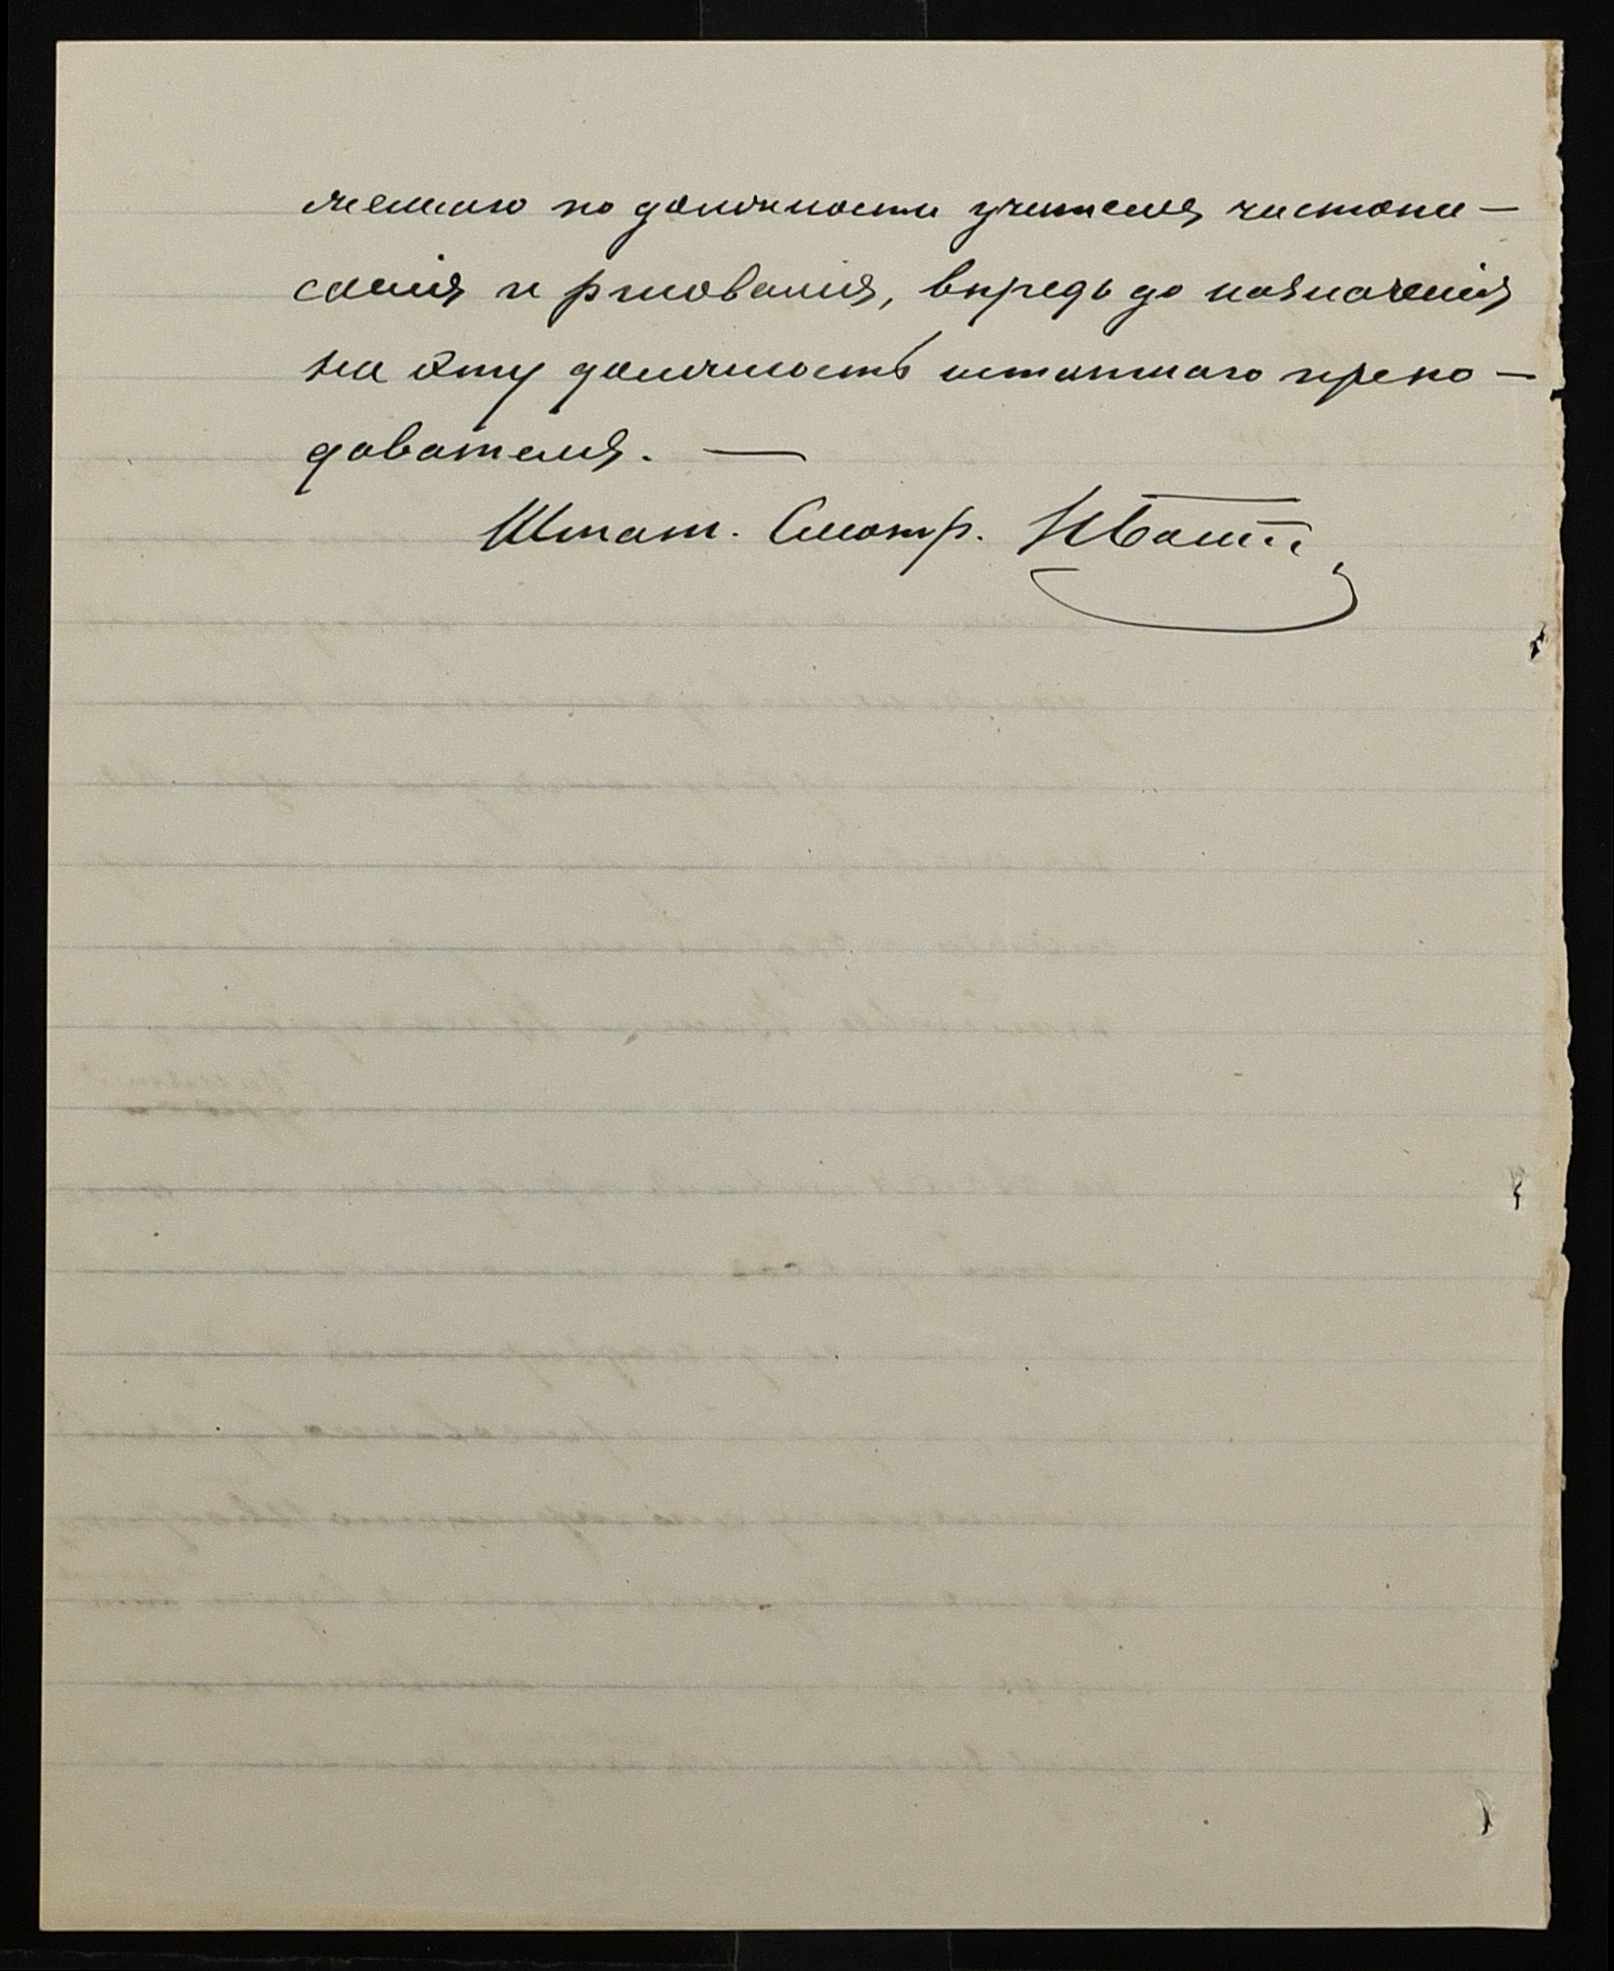 меннаю по должности учителя чистопи—
санія и рисованія, впредь до назначенія
на эту должность штатнаго препо—
давателя. —
Штат. Смотр.